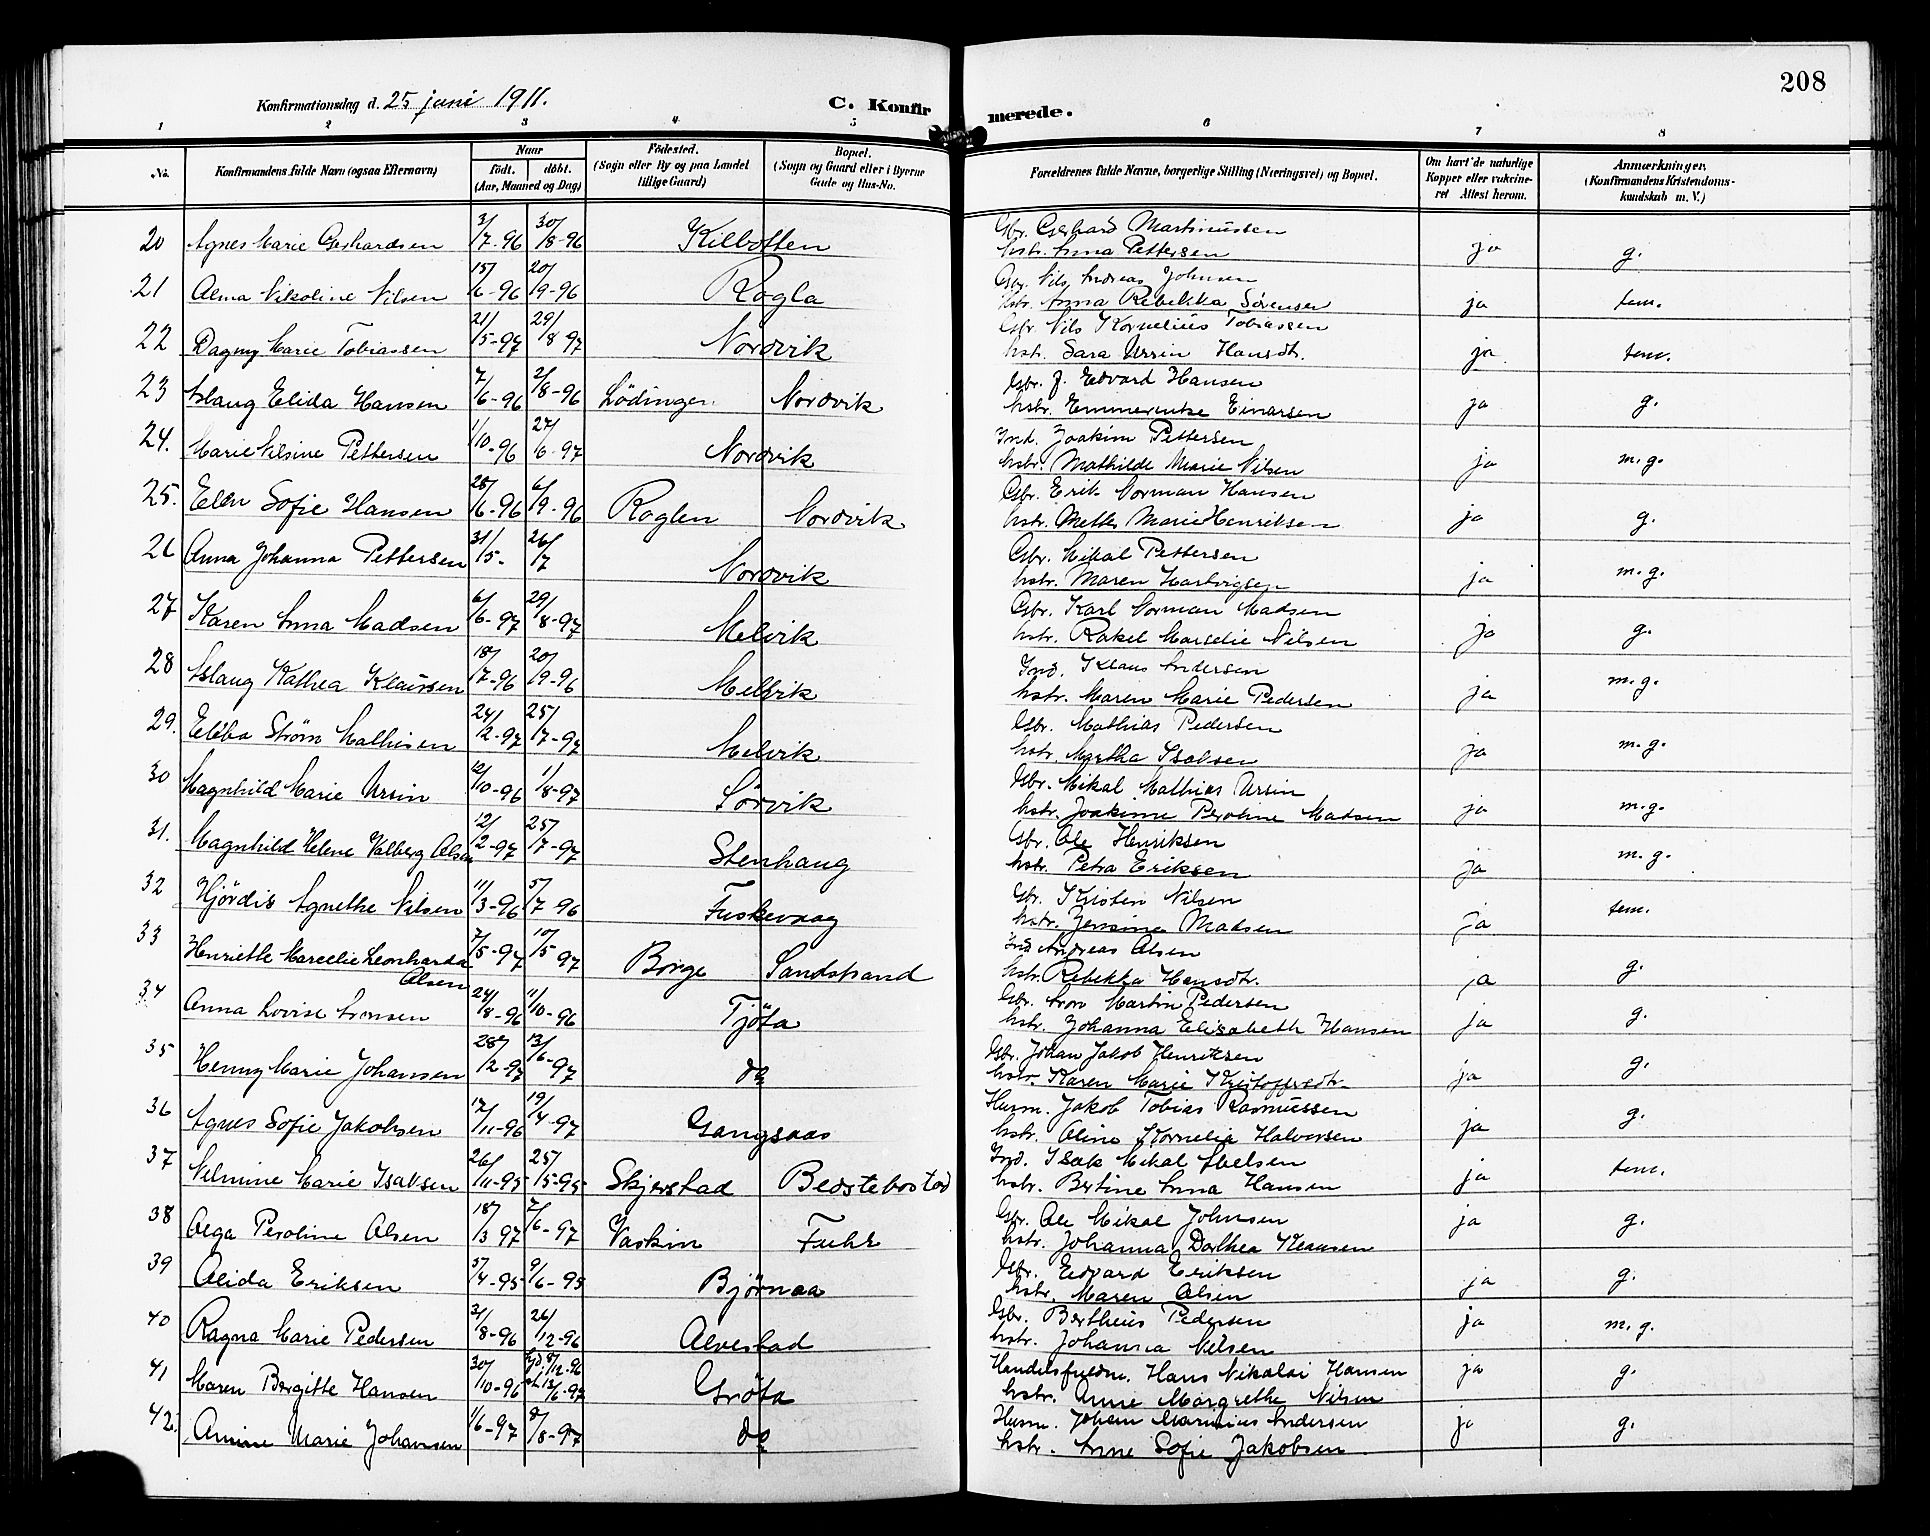 208
Konfirmationsdag d. 25 juni 1911.
C. Konfirmerede.
1 2 3 4 5 6 7 8
No. Konfirmandens fulde Navn (ogsaa Efternavn) Naar født. døbt. (Aar, Maaned og Dag) Fødested. (Sogn eller By og paa Landet tillige Gaard) Bopæl. (Sogn og Gaard eller i Byerne Gade og Hus-No. Forældrenes fulde Navne, borgerlige Stilling (Næringsvei) og Bopæl. Om havt de naturlige Kopper eller vakcineret Attest herom. Anmærkninger. (Konfirmandens Kristendomskundskab m. V.)
20 Agnes Marie Gerhardsen 3/7-96 30/8-96 Kilbotten Gbr. Gerhard Martinussen
hstr. Anna Pettersen ja g.
21 Alma Nikoline Nilsen 15/6-96 20/9-96 Rogla Gbr. Nils Andreas Johnsen
hstr. Anna Rebekka Sørensen ja tem.
22 Dagny Marie Tobiassen 21/5-97 29/8 97 Nordvik Gbr. Nils Kornelius Tobiassen
hstr. Sara Ursin Hansdt. ja tem.
23 Aslaug Elida Hansen 7/6-96 2/8-96 Lødingen Nordvik Gbr. J. Edvard Hansen
hstr. Emmerentse Einarsen ja g.
24. Marie Nilsine Pettersen 1/10-96 27/6-97 Nordvik Ind. Joakim Pettersen
hstr. Mathilde Marie Nilsen ja m.g.
25. Ellen Sofie Hansen 28/6-96 6/9-96 Roglen Nordvik Gbr. Erik Norman Hansen
hstr. Mette Marie Henriksen ja g.
26 Anna Johanna Pettersen 31/5- 26/7 Nordvik Gbr. Mikal Pettersen
hstr. Maren Hartvigsen ja m.g.
27 Karen Anna Madsen 6/6-97 29/8-97 Melvik Gbr. Karl Norman Madsen
hstr. Rakel Marselie Nilsen ja g.
28 Aslaug Kathea Klaussen 18/7-96 20/9-96 Melvik Ind. Klaus Andersen
hstr. Maren Marie Pedersen ja m.g.
29. Ebba Strøm Mathisen 24/2-97 25/7-97 Melvik Gbr. Mathias Pedersen
hstr. Martha Isaksen ja m.g.
30 Magnhild Marie Ursin 12/10-96 1/8-97 Sørvik Gbr. Mikal Mathias Ursin
hstr. Joakime Peroline Madsen ja m.g.
31. Magnhild Helene Valberg Olsen 12/2-97 25/7-97 Stenhaug Gbr. Ole Henriksen
hstr. Petra Eriksen ja m.g.
32 Hjørdis Agnethe Nilsen 11/3-96 5/7 96 Fuskevaag Gbr. Kristen Nilsen
hstr. Jensine Madsen ja tem.
33 Henriette Marcelie Leonharda Olsen 7/5-97 10/5 97 Borge Sandstrand Ind Andreas Olsen
hstr. Rebekka Hansdtr. ja g.
34 Anna Lovise Aronsen 24/8-96 11/10-96 Tjøta Gbr. Aron Martin Pedersen
hstr. Johanna Elisabeth Hansen ja g.
35 Henny Marie Johansen 28/2-97 13/6-97 do Gbr. Johan Jakob Henriksen
hstr. Karen Marie Kristoffersdtr. ja g.
36 Agnes Sofie Jakobsen 17/11-96 19/4-97 Gangsaas Husm. Jakob Tobias Rasmussen
hstr. Oline Kornelia Halvorsen ja g.
37 Nilmine Marie Isaksen 26/11-95 25/5-95 Skjerstad Bedstebostad Ind. Isak Mikal Abelsen
hstr. Bertine Anna Hansen ja tem.
38 Olga Peroline Olsen 18/3 97 7/6-97 Vaskin Fuhr Gbr. Ole Mikal Johnsen
hstr. Johanna Dorthea Klausen ja g.
39 Alida Eriksen 5/4-95 9/6-95 Bjørnaa Gbr. Edvard Eriksen
hstr. Maren Olsen ja g.
40 Ragna Marie Pedersen 31/8-96 26/12-96 Alvestad Gbr. Bertheus Pedersen
hstr. Johanna Nilsen ja m.g.
41 Maren Bergitte Hansen 30/10-96 hjd. 8/12-96 st. 13/6-97 Grøta Handelsfuldm. Hans Nikolai Hansen
hstr. Anne Margrethe Nilsen ja g.
42. Amine Marie Johansen 1/6-97 8/8-97 do Husm. Johan Marinius Andersen
hstr. Anne Sofie Jakobsen ja g.